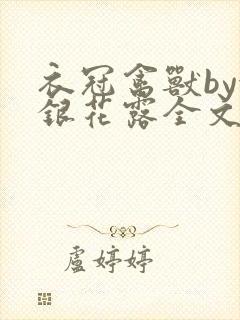 衣冠禽獸by
銀花露全文
盧婷婷